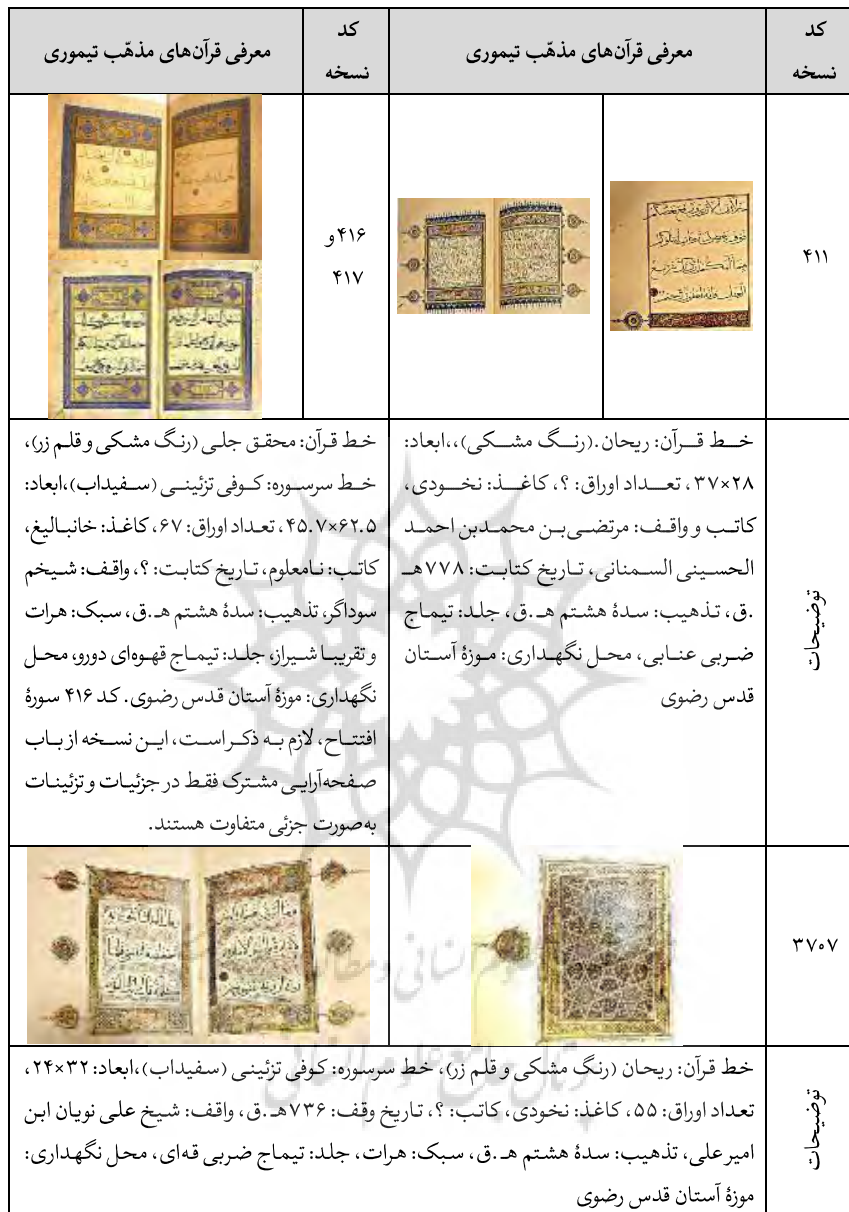 کد نسخه
معرفی قرآن‌های مذهّب تیموری
کد نسخه
معرفی قرآن‌های مذهّب تیموری
۴۱۱
۴۱۶ و
۴۱۷
توضیحات
خط قرآن: ریحان.(رنگ مشکی)،،ابعاد:
۳۷×۲۸، تعداد اوراق: ؟، کاغذ: نخودی،
کاتب و واقف: مرتضی‌بن محمدبن احمد
الحسینی السمنانی، تاریخ کتابت: ۷۷۸هـ
.ق، تذهیب: سدۀ هشتم هـ.ق، جلد: تیماج
ضربی عنابی، محل نگهداری: موزۀ آستان
قدس رضوی
خط قرآن: محقق جلی (رنگ مشکی و قلم زر)،
خط سرسوره: کوفی تزئینی (سفیداب)،ابعاد:
۴۵.۷×۶۲.۵، تعداد اوراق: ۶۷، کاغذ: خانبالیغ،
کاتب: نامعلوم، تاریخ کتابت: ؟، واقف: شیخم
سوداگر، تذهیب: سدۀ هشتم هـ.ق، سبک: هرات
و تقریبا شیراز، جلد: تیماج قهوه‌ای دورو، محل
نگهداری: موزۀ آستان قدس رضوی. کد ۴۱۶ سورۀ
افتتاح، لازم به ذکر است، این نسخه از باب
صفحه‌آرایی مشترک فقط در جزئیات و تزئینات
به‌صورت جزئی متفاوت هستند.
۳۷۰۷
توضیحات
خط قرآن: ریحان (رنگ مشکی و قلم زر)، خط سرسوره: کوفی تزئینی (سفیداب)،ابعاد: ۳۲×۲۴،
تعداد اوراق: ۵۵، کاغذ: نخودی، کاتب: ؟، تاریخ وقف: ۷۳۶هـ.ق، واقف: شیخ علی نویان ابن
امیرعلی، تذهیب: سدۀ هشتم هـ.ق، سبک: هرات، جلد: تیماج ضربی قه‌ای، محل نگهداری:
موزۀ آستان قدس رضوی